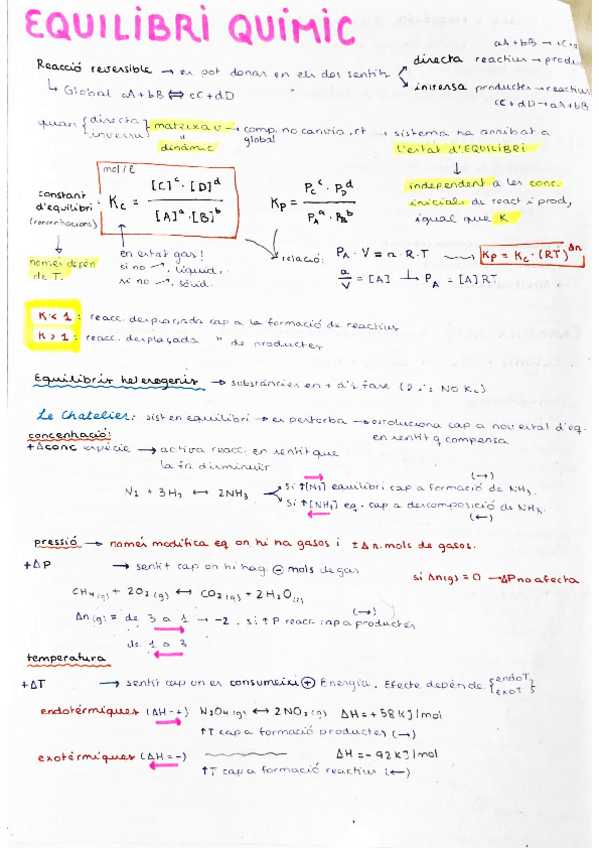 EQUILIBRI QUIMIC
Reacció reversible → es pot donar en els dos sentits
directa reactius → produ
aA+bB → cC+
inversa productes → reactius
cC+dD → aA+bB
↳ Global aA+bB ⇔ cC+dD
quan { directa inversa } mateixa v → comp. no canvia, rt → sistema ha arribat a
" dinàmic global l'estat d'EQUILIBRI
independent a les conc.
inicials de react i prod,
igual que K
mol/l
constant d'equilibri (concentracions) : Kc = [C]ᶜ · [D]ᵈ / [A]ᵃ · [B]ᵇ
Kp = Pcᶜ · P_Dᵈ / P_Aᵃ · P_Bᵇ
només depèn de T.
en estat gas!
si no →, líquid.
si no →, sòlid.
relació: P_A · V = a · R · T → Kp = Kc · (RT)^Δn
a/V = [A] → P_A = [A] RT
K < 1 : reacc. desplaçada cap a la formació de reactius
K > 1 : reacc. desplaçada " de productes
Equilibris heterogenis → substàncies en + d'1 fase (
Le Chatelier: sist en equilibri → es pertorba → evoluciona cap a nou estat d'eq.
en sentit q compensa
concentració:
+Δconc espècie → activa reacc. en sentit que
la fa disminuir
N₂ + 3H₂ ↔ 2NH₃
si ↑[N₂] equilibri cap a formació de NH₃. (→)
si ↑[NH₃] eq. cap a descomposició de NH₃. (←)
pressió → només modifica eq on hi ha gasos i ±Δn.mols de gasos.
+ΔP → sentit cap on hi hagi ⊖ mols de gas
si Δn(g) = 0 → ΔP no afecta
CH₄(g) + 2O₂(g) ↔ CO₂(g) + 2H₂O(l)
Δn(g) = de 3 a 1 → -2. si ↑P reacc cap a productes (→)
de 1 a 3
temperatura
+ΔT → sentit cap on es consumeixi ⊕ Energia. Efecte depèn de { endoT exoT }
endotèrmiques (ΔH=+) N₂O₄(g) ↔ 2NO₂(g) ΔH=+58KJ/mol
↑T cap a formació productes (→)
exotèrmiques (ΔH=-) ΔH=-92KJ/mol
↑T cap a formació reactius (←)